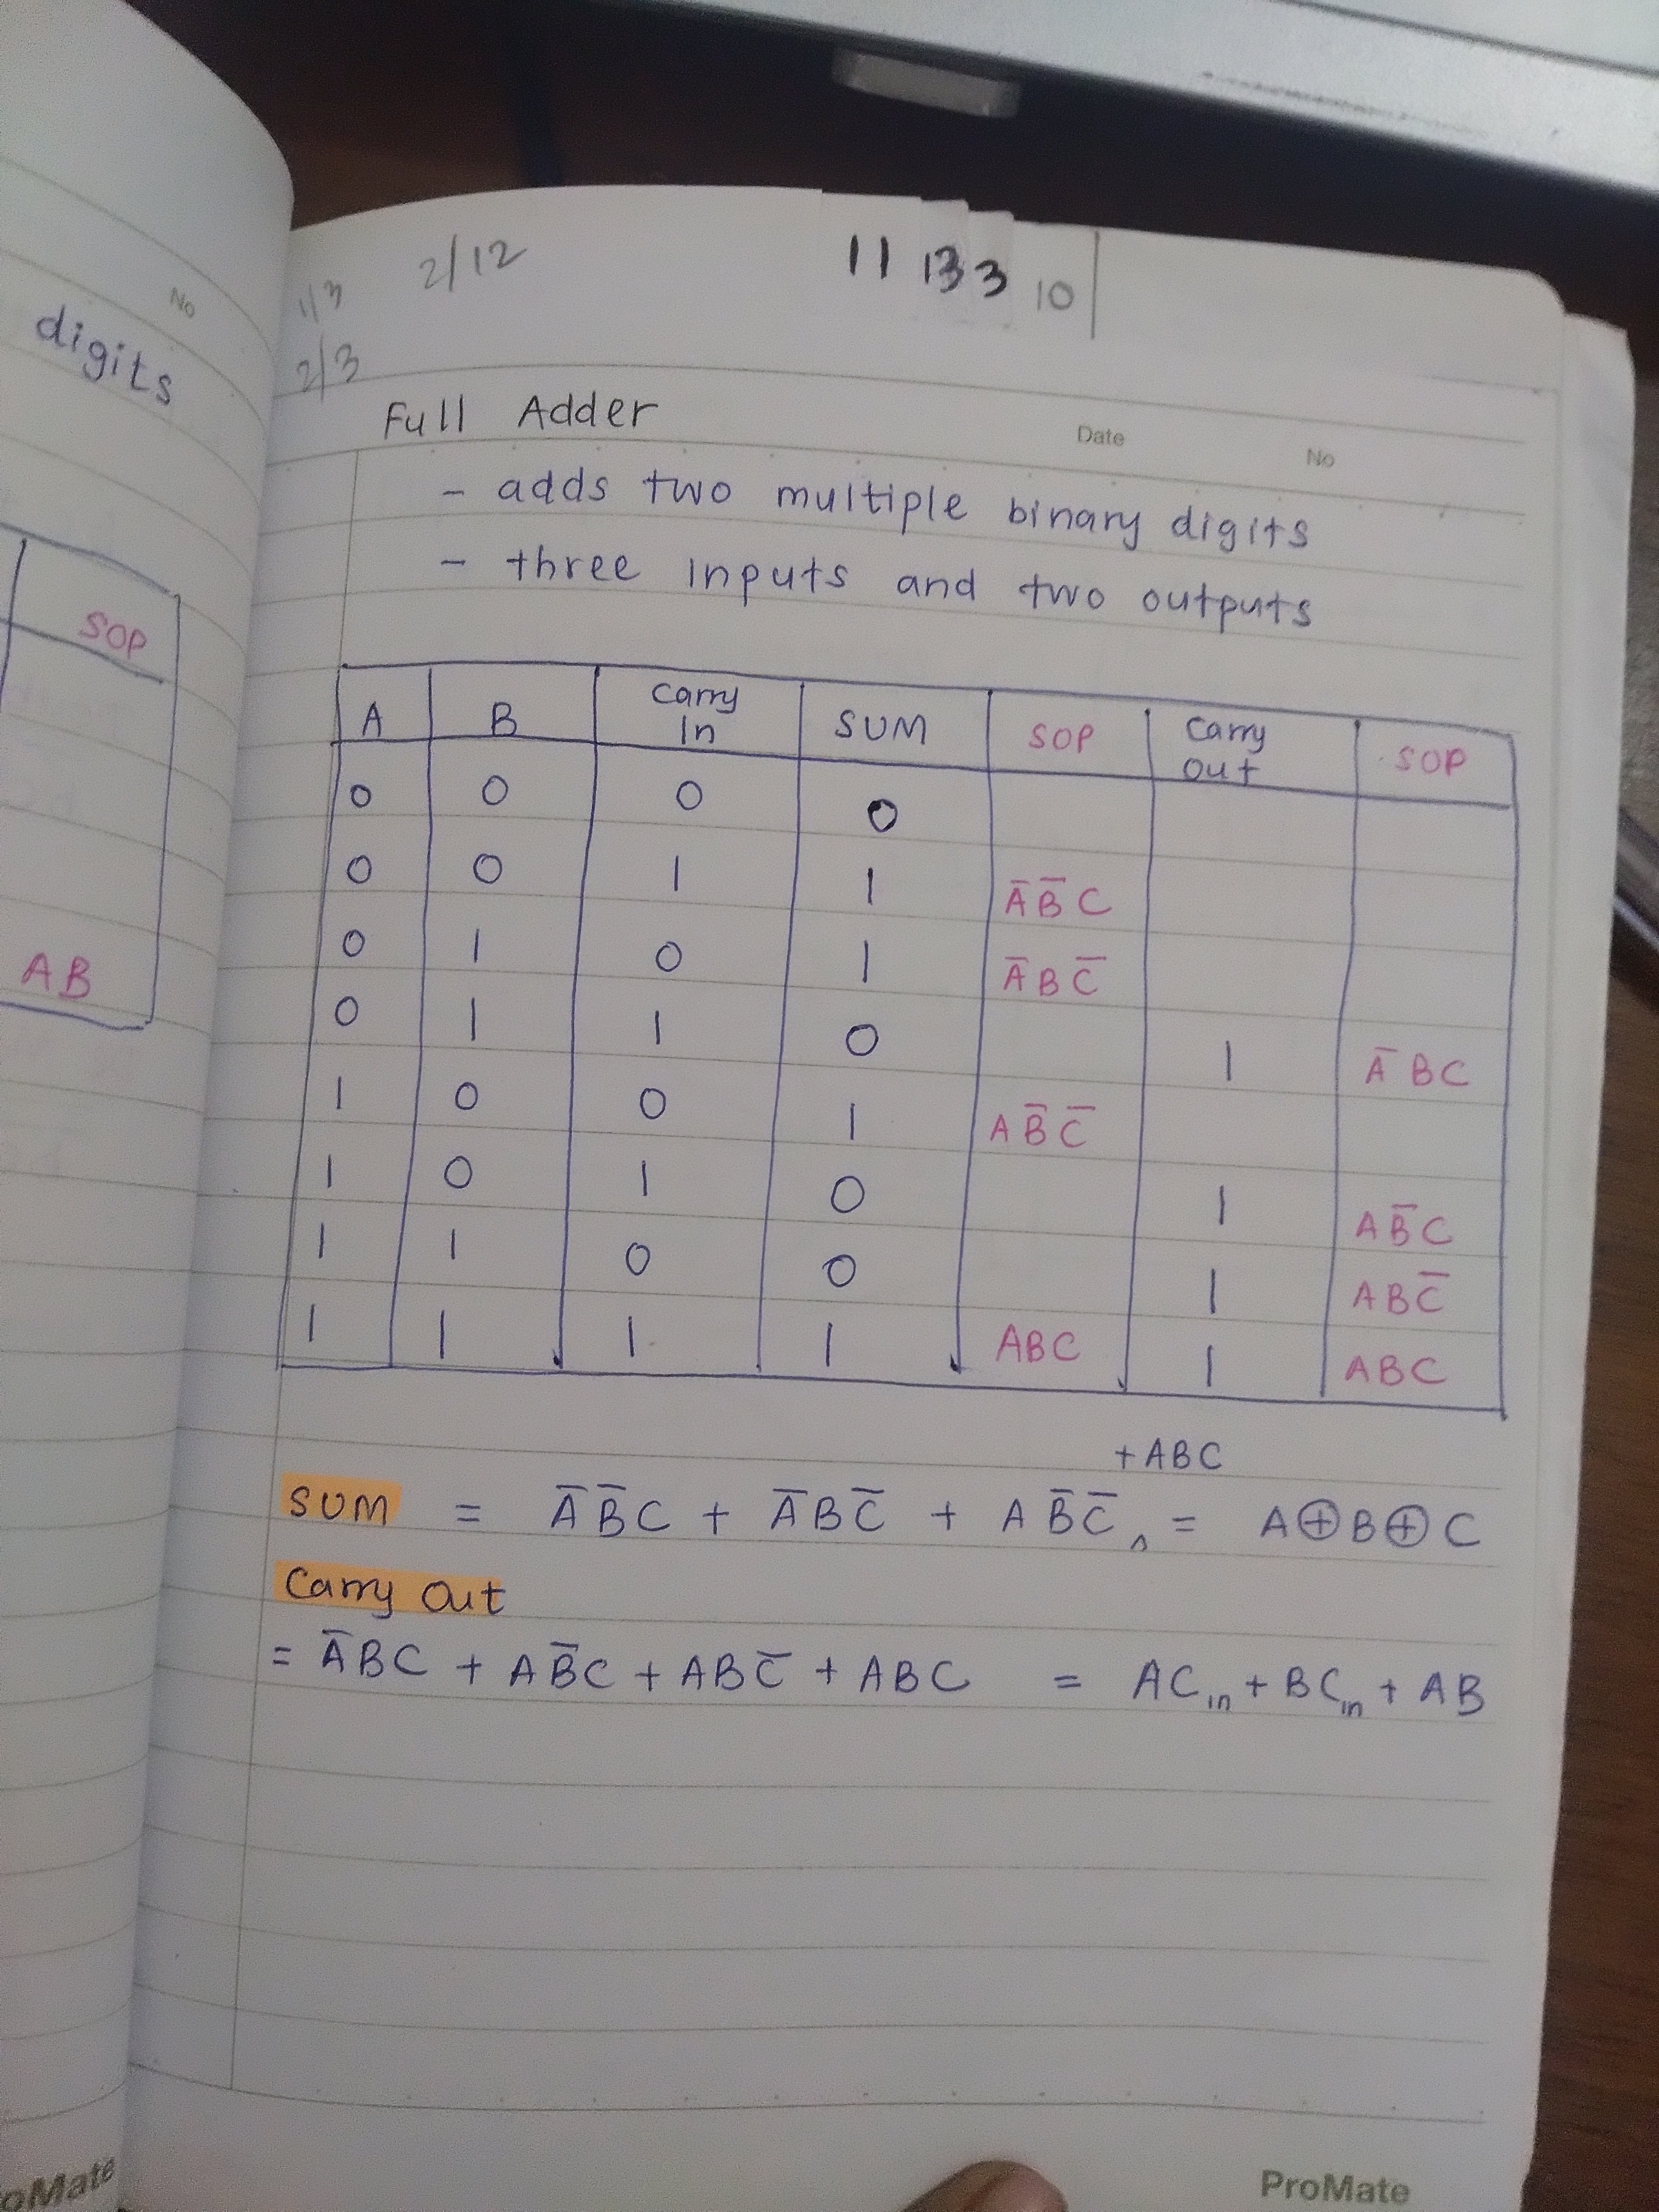 No
digits
SOP
AB
oMate
1/3 2/12 11 13 3 10
2/3
Full Adder
Date No
- adds two multiple binary digits
- three inputs and two outputs
A B Carry In SUM SOP Carry Out SOP
0 0 0 0
0 0 1 1 A̅B̅C
0 1 0 1 A̅BC̅
0 1 1 0 1 A̅BC
1 0 0 1 AB̅C̅
1 0 1 0 1 AB̅C
1 1 0 0 1 ABC̅
1 1 1 1 ABC 1 ABC
+ABC
SUM = A̅B̅C + A̅BC̅ + AB̅C̅ ^ = A⊕B⊕C
Carry Out
= A̅BC + AB̅C + ABC̅ + ABC = ACin + BCin + AB
ProMate